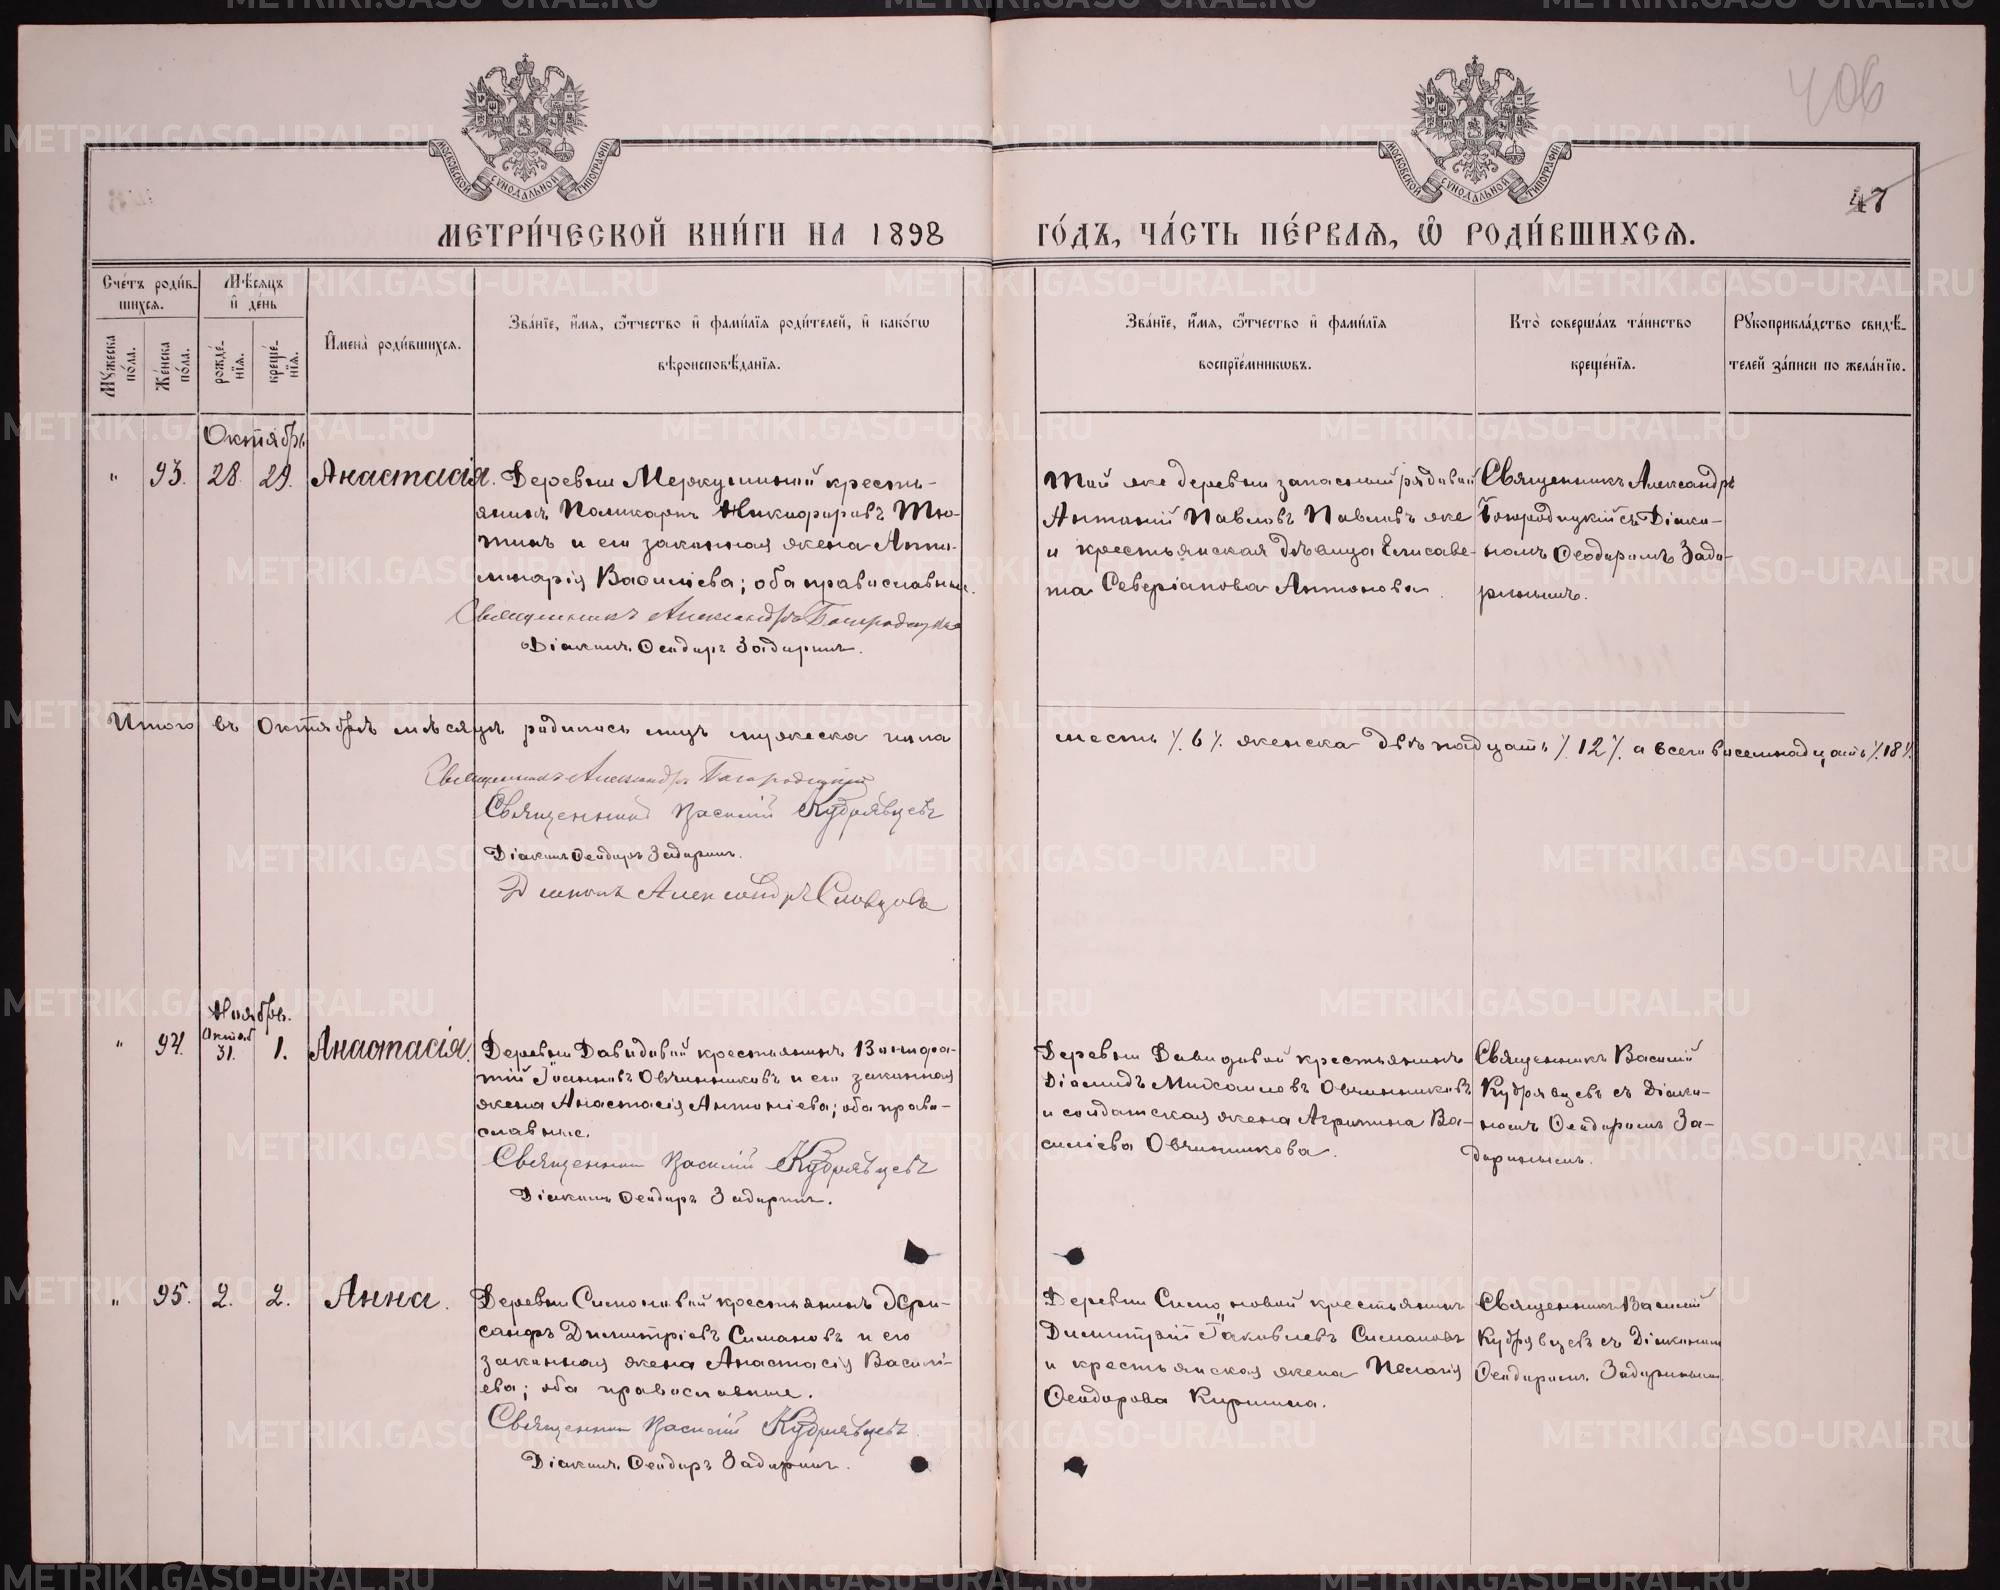 406
47
МОСКОВСКОЙ СУНОДАЛЬНОЙ ТИПОГРАФІИ
МОСКОВСКОЙ СУНОДАЛЬНОЙ ТИПОГРАФІИ
МЕТРИ́ЧЕСКОЙ КНИ́ГИ НА 1898
ГО́ДЪ, ЧА́СТЬ ПЕ́РВАѦ, Ѡ РОДИ́ВШИХСѦ.
Сче́тъ роди́в-
шихсѧ.
Му́жеска по́ла.
Же́нска по́ла.
Мѣ́сѧцъ
и҆ де́нь
рожде́-нїѧ.
креще́-нїѧ.
И҆мена̀ роди́вшихсѧ.
Зва́нїе, и҆́мѧ, ѻ҆́тчество и҆ фами́лїѧ роди́телей, и҆ како́гѡ
вѣроисповѣ́данїѧ.
Зва́нїе, и҆́мѧ, ѻ҆́тчество и҆ фами́лїѧ
воспрїе́мникѡвъ.
Кто̀ соверша́лъ та́инство
креще́нїѧ.
Рꙋкоприкла́дство свидѣ́-
телей за́писи по жела́нїю.
Октябрь
" 93. 28. 29. Анастасія.
Деревни Меркушиной кресть-
янинъ Поликарпъ Никифоровъ Тю-
тинъ и его законная жена Апол-
линарія Василіева; оба православные.
Священникъ Александръ Богородицкій
Діаконъ Ѳеодоръ Задоринъ.
Той же деревни запасный рядовой
Антоній Павловъ Павловъ же
и крестьянская дѣвица Елисаве-
та Северіанова Антонова.
Священникъ Александръ
Богородицкій съ Діако-
номъ Ѳеодоромъ Задо-
ринымъ.
Итого въ Октябрѣ мѣсяцѣ родилось лицъ мужеска пола
шесть ⁒ 6 ⁒ женска двѣнадцать ⁒ 12 ⁒ а всего восемнадцать ⁒ 18 ⁒
Священникъ Александръ Богородицкій
Священникъ Василій Кудрявцевъ
Діаконъ Ѳеодоръ Задоринъ.
Діаконъ Александръ Словцовъ
Ноябрь.
" 94. Октяб 31. 1. Анастасія.
Деревни Давидовой крестьянинъ Вонифа-
тій Іоанновъ Овчинниковъ и его законная
жена Анастасія Антоніева; оба право-
славные.
Священникъ Василій Кудрявцевъ
Діаконъ Ѳеодоръ Задоринъ.
Деревни Давидовой крестьянинъ
Діомидъ Михаиловъ Овчинниковъ
и солдатская жена Агриппина Ва-
силіева Овчинникова.
Священникъ Василій
Кудрявцевъ съ Діако-
номъ Ѳеодоромъ За-
доринымъ.
" 95. 2. 2. Анна.
Деревни Симоновой крестьянинъ Хри-
санфъ Димитріевъ Симановъ и его
законная жена Анастасія Василі-
ева; оба православные.
Священникъ Василій Кудрявцевъ
Діаконъ Ѳеодоръ Задоринъ.
Деревни Симоновой крестьянинъ
Димитрій Іаковлевъ Симановъ
и крестьянская жена Пелагія
Ѳеодорова
Священникъ Василій
Кудрявцевъ съ Діакономъ
Ѳеодоромъ Задоринымъ.
METRIKI.GASO-URAL.RU